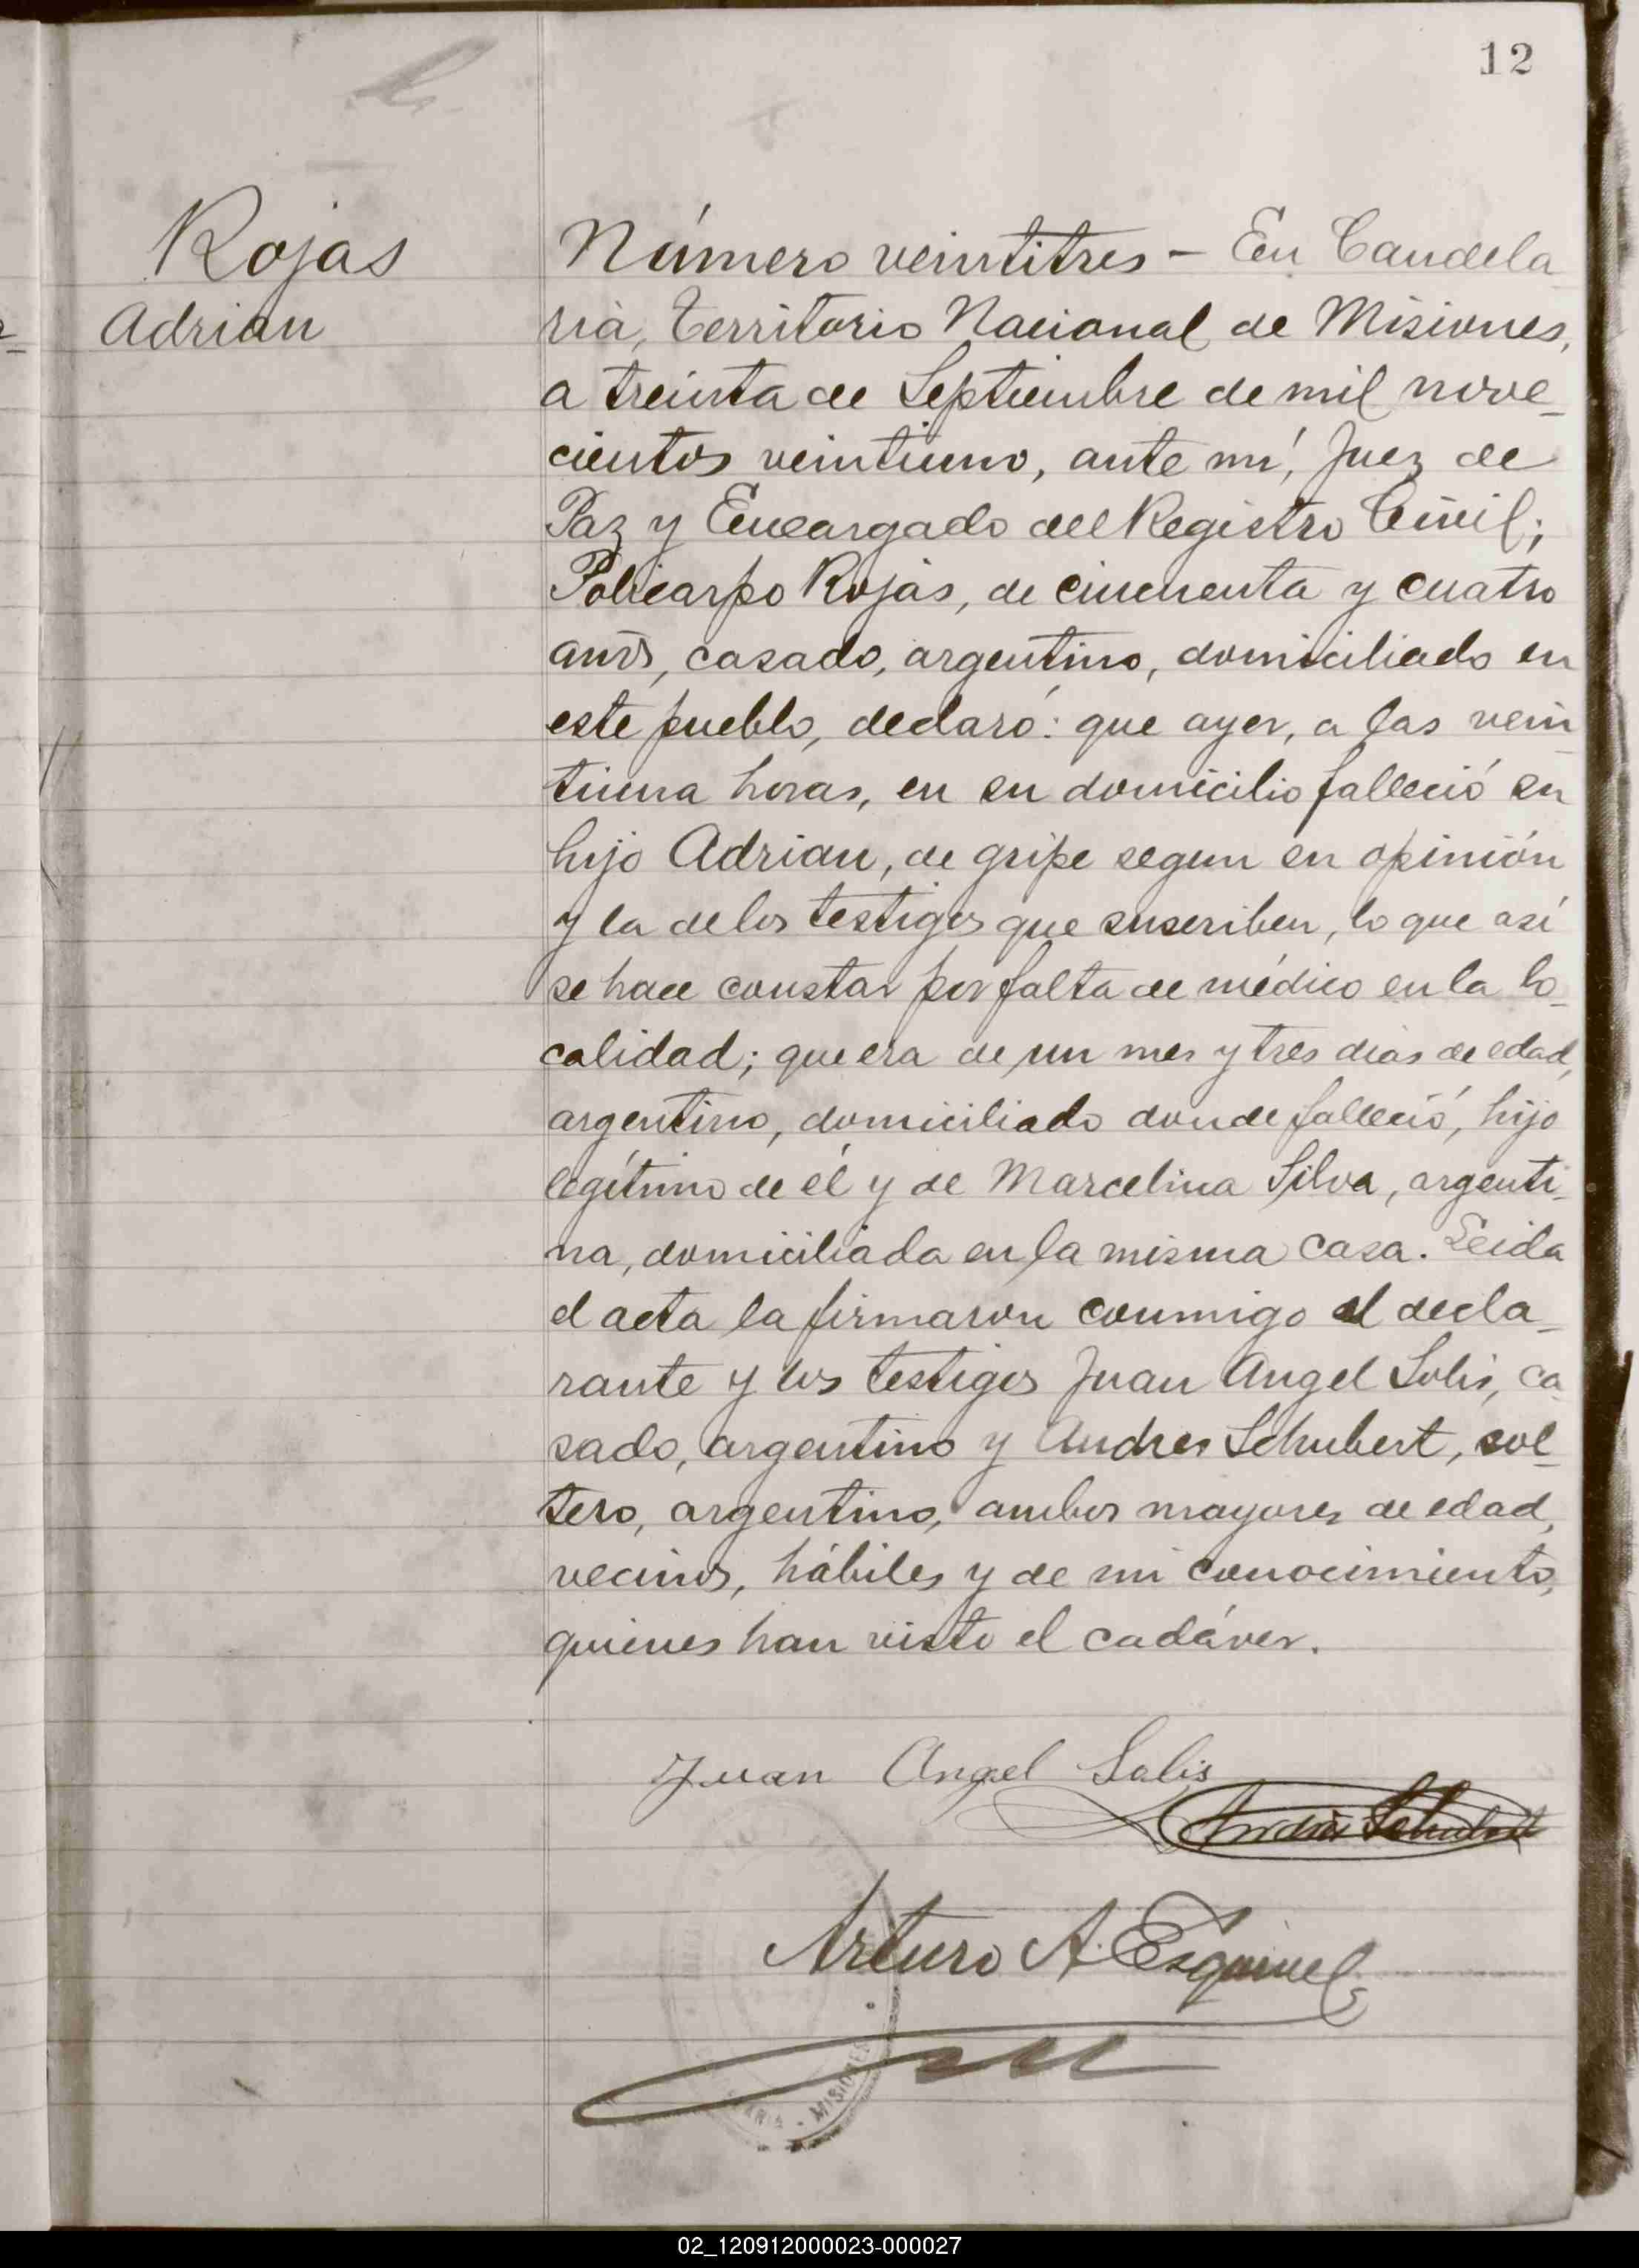 12
Rojas
Adrian
Número veintitres – En Candela
ria, Territorio Nacional de Misiones,
a treinta de Septiembre de mil nove-
cientos veintiuno, ante mí, Juez de
Paz y Encargado del Registro Civil;
Policarpo Rojas, de cincuenta y cuatro
años, casado, argentino, domiciliado en
este pueblo, declaró: que ayer, a las vein
tiuna horas, en su domicilio falleció su
hijo Adrian, de gripe segun su opinión
y la de los testigos que suscriben, lo que así
se hace constar por falta de médico en la lo-
calidad; que era de un mes y tres dias de edad,
argentino, domiciliado donde falleció, hijo
legítimo de él y de Marcelina Silva, argenti-
na, domiciliada en la misma casa. Leida
el acta la firmaron conmigo el decla-
rante y los testigos Juan Angel Solis, ca-
sado, argentino y Andres Schubert, sol-
tero, argentino, ambos mayores de edad,
vecinos, hábiles y de mi conocimiento,
quienes han visto el cadáver.
Juan Angel Solis
Andrés Schubert
Arturo A. Esquivel
ARIA - MISIONES
02_120912000023-000027